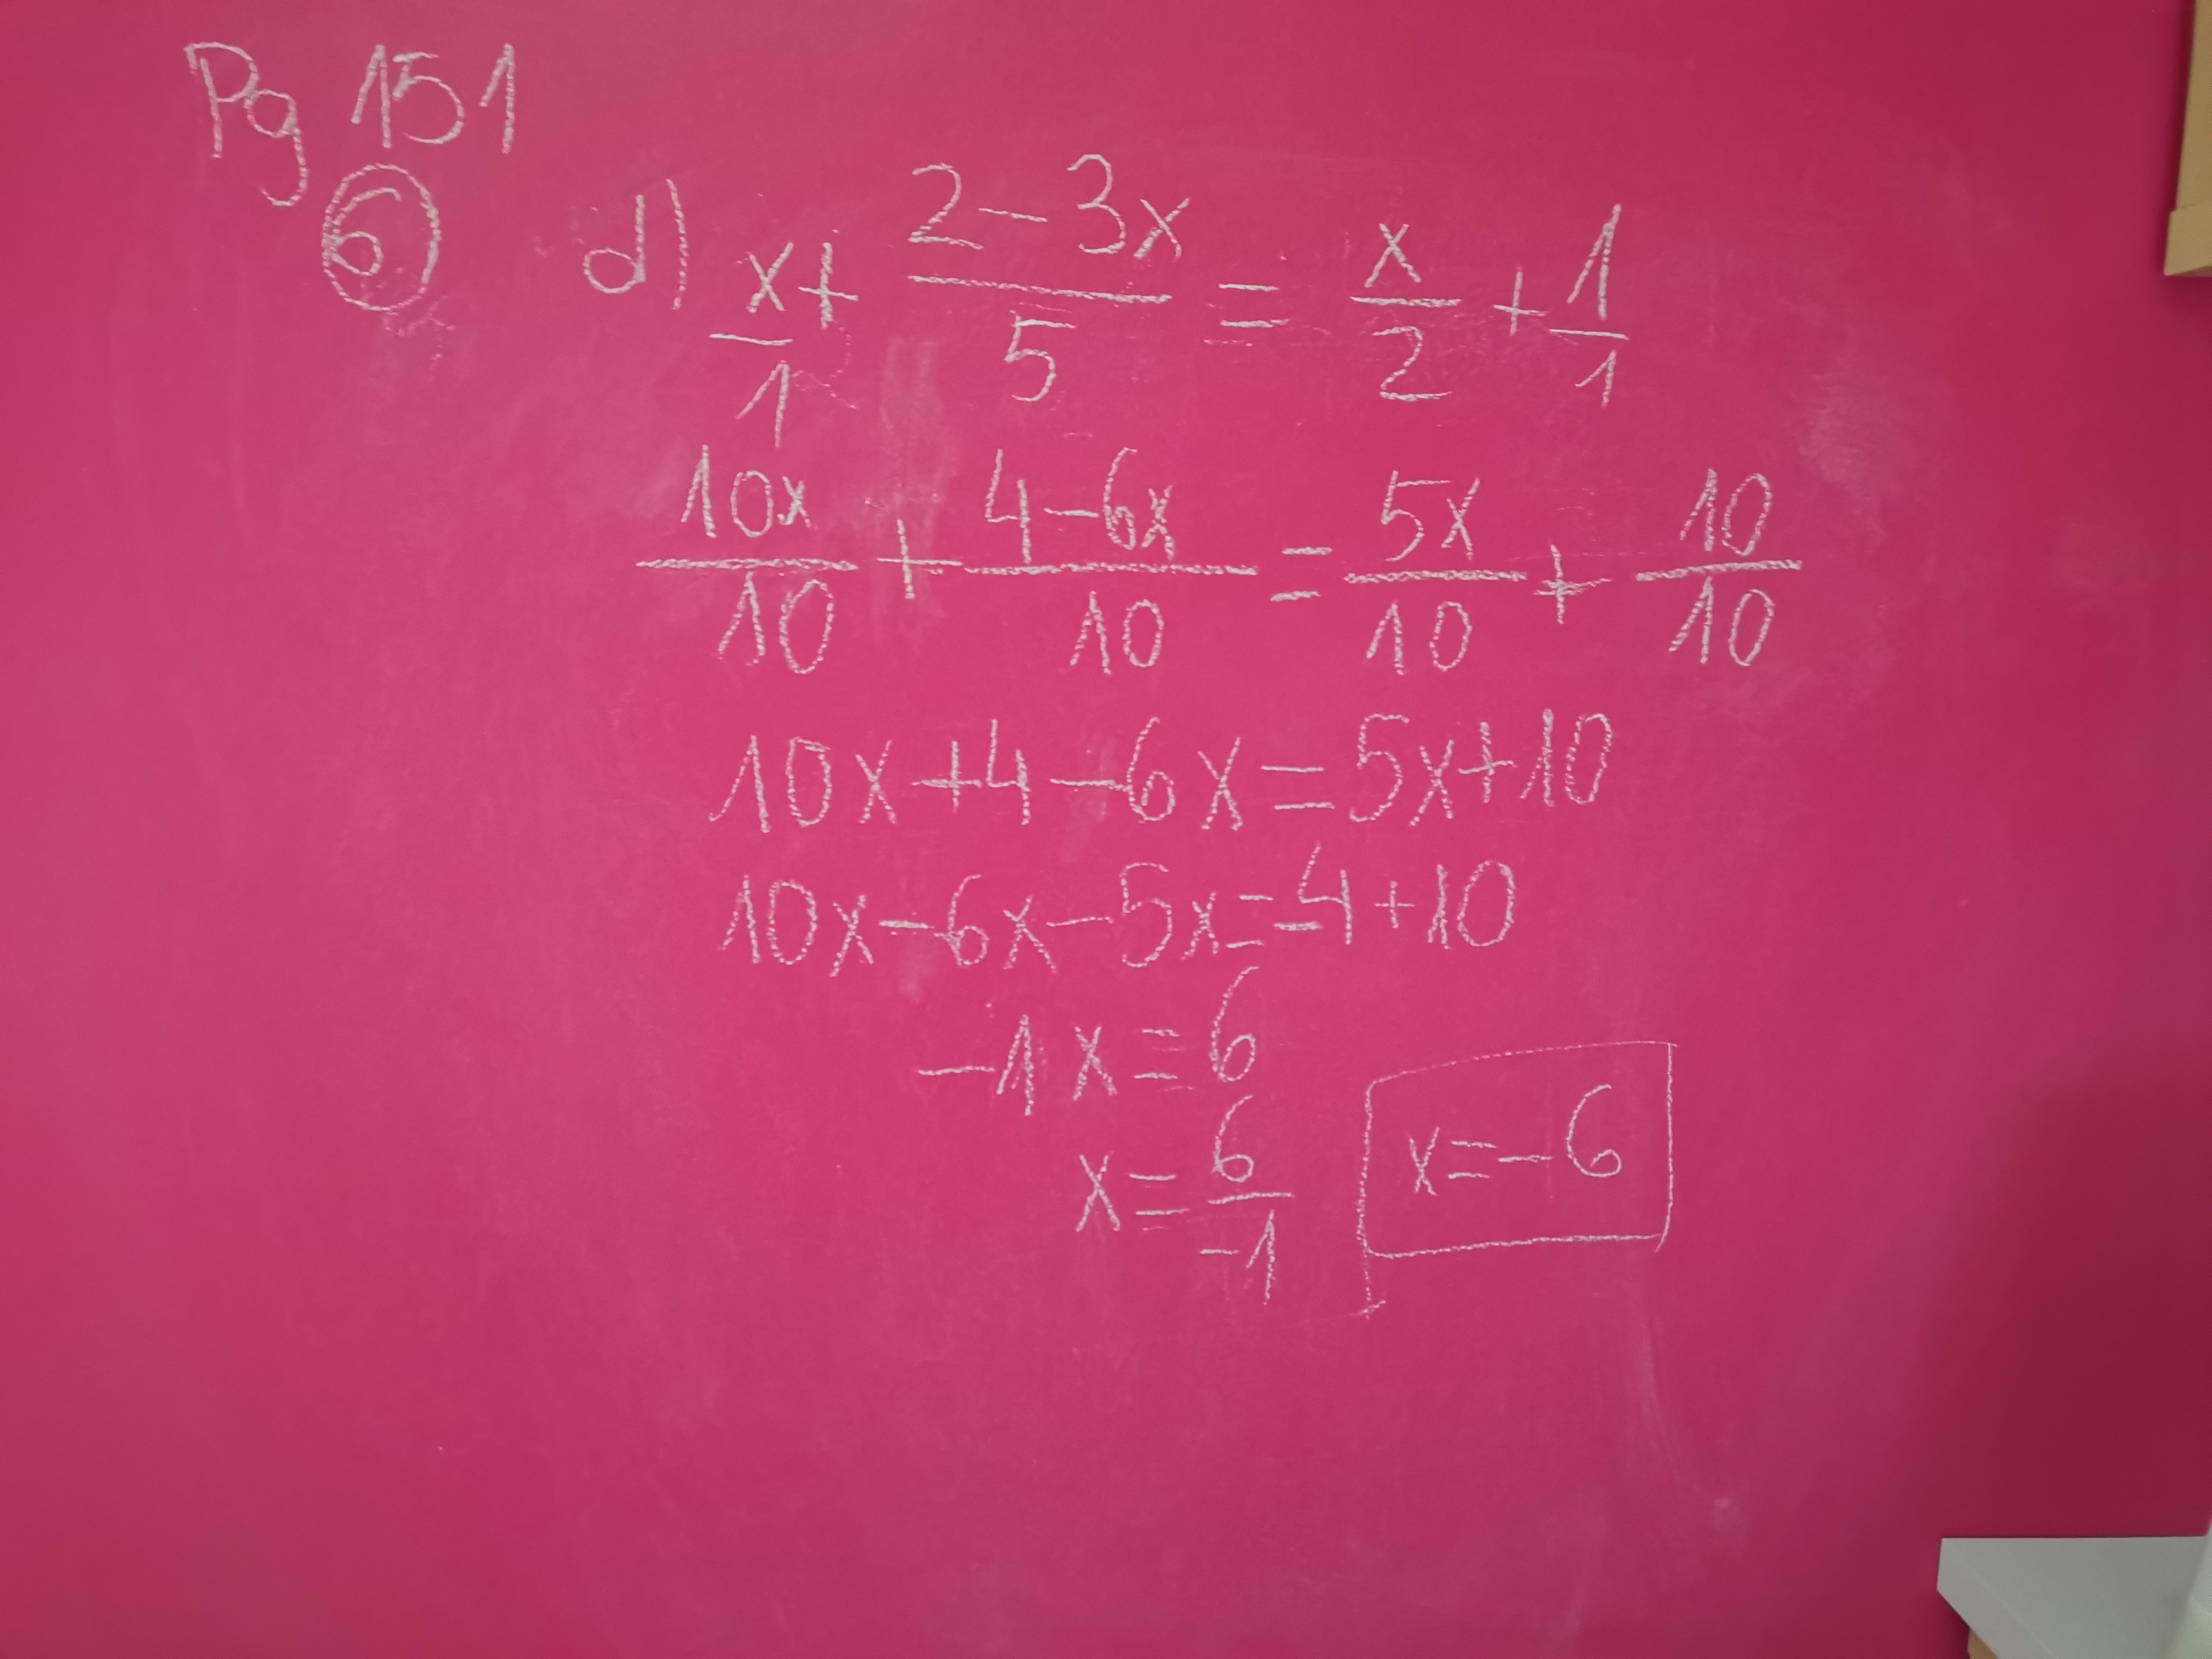 Pg 151
6 d) x/1 + (2-3x)/5 = x/2 + 1/1
10x/10 + (4-6x)/10 = 5x/10 + 10/10
10x+4-6x=5x+10
10x-6x-5x=-4+10
-1x=6
x=6/-1 x=-6